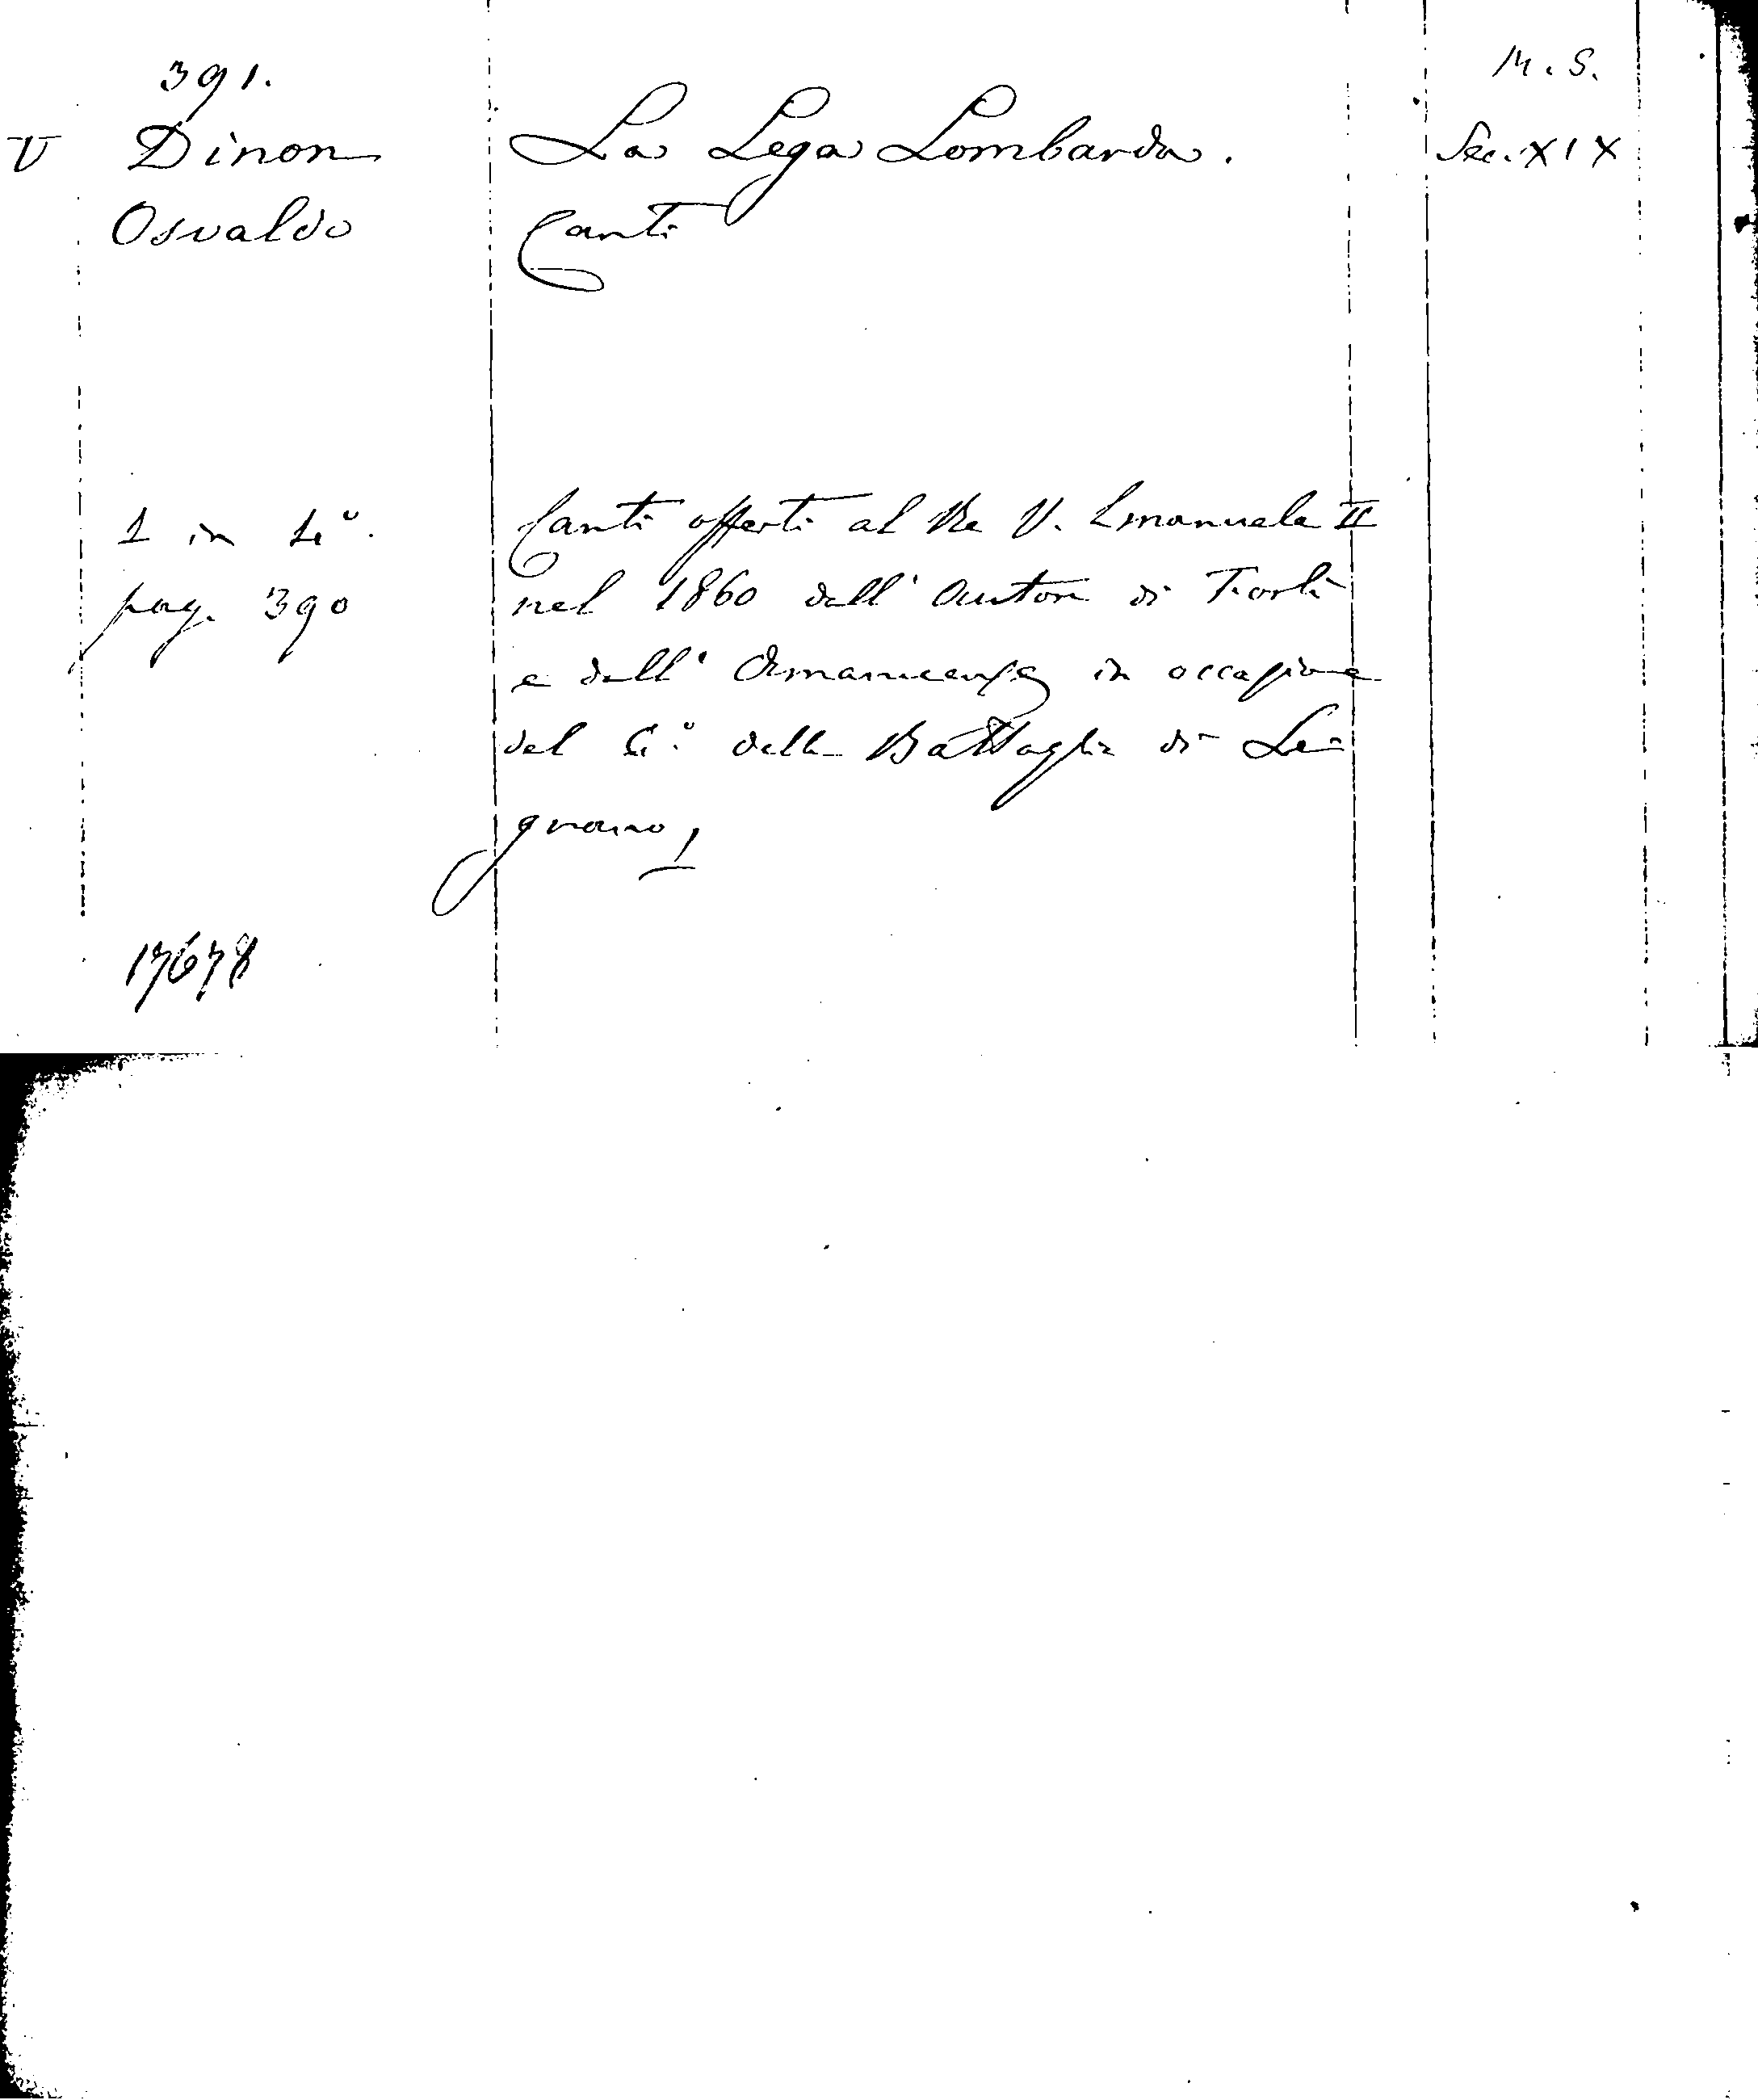 391.
M. S.
V Dinon La Lega Lombarda. Sec. XIX
Osvaldo Canti
1 in 4°. Canti offerti al Re V. Emanuele II
pag. 390 nel 1860 dall' Autore di Forlì
e dall' in occasione
del della Battaglia di Le-
gnano
17678